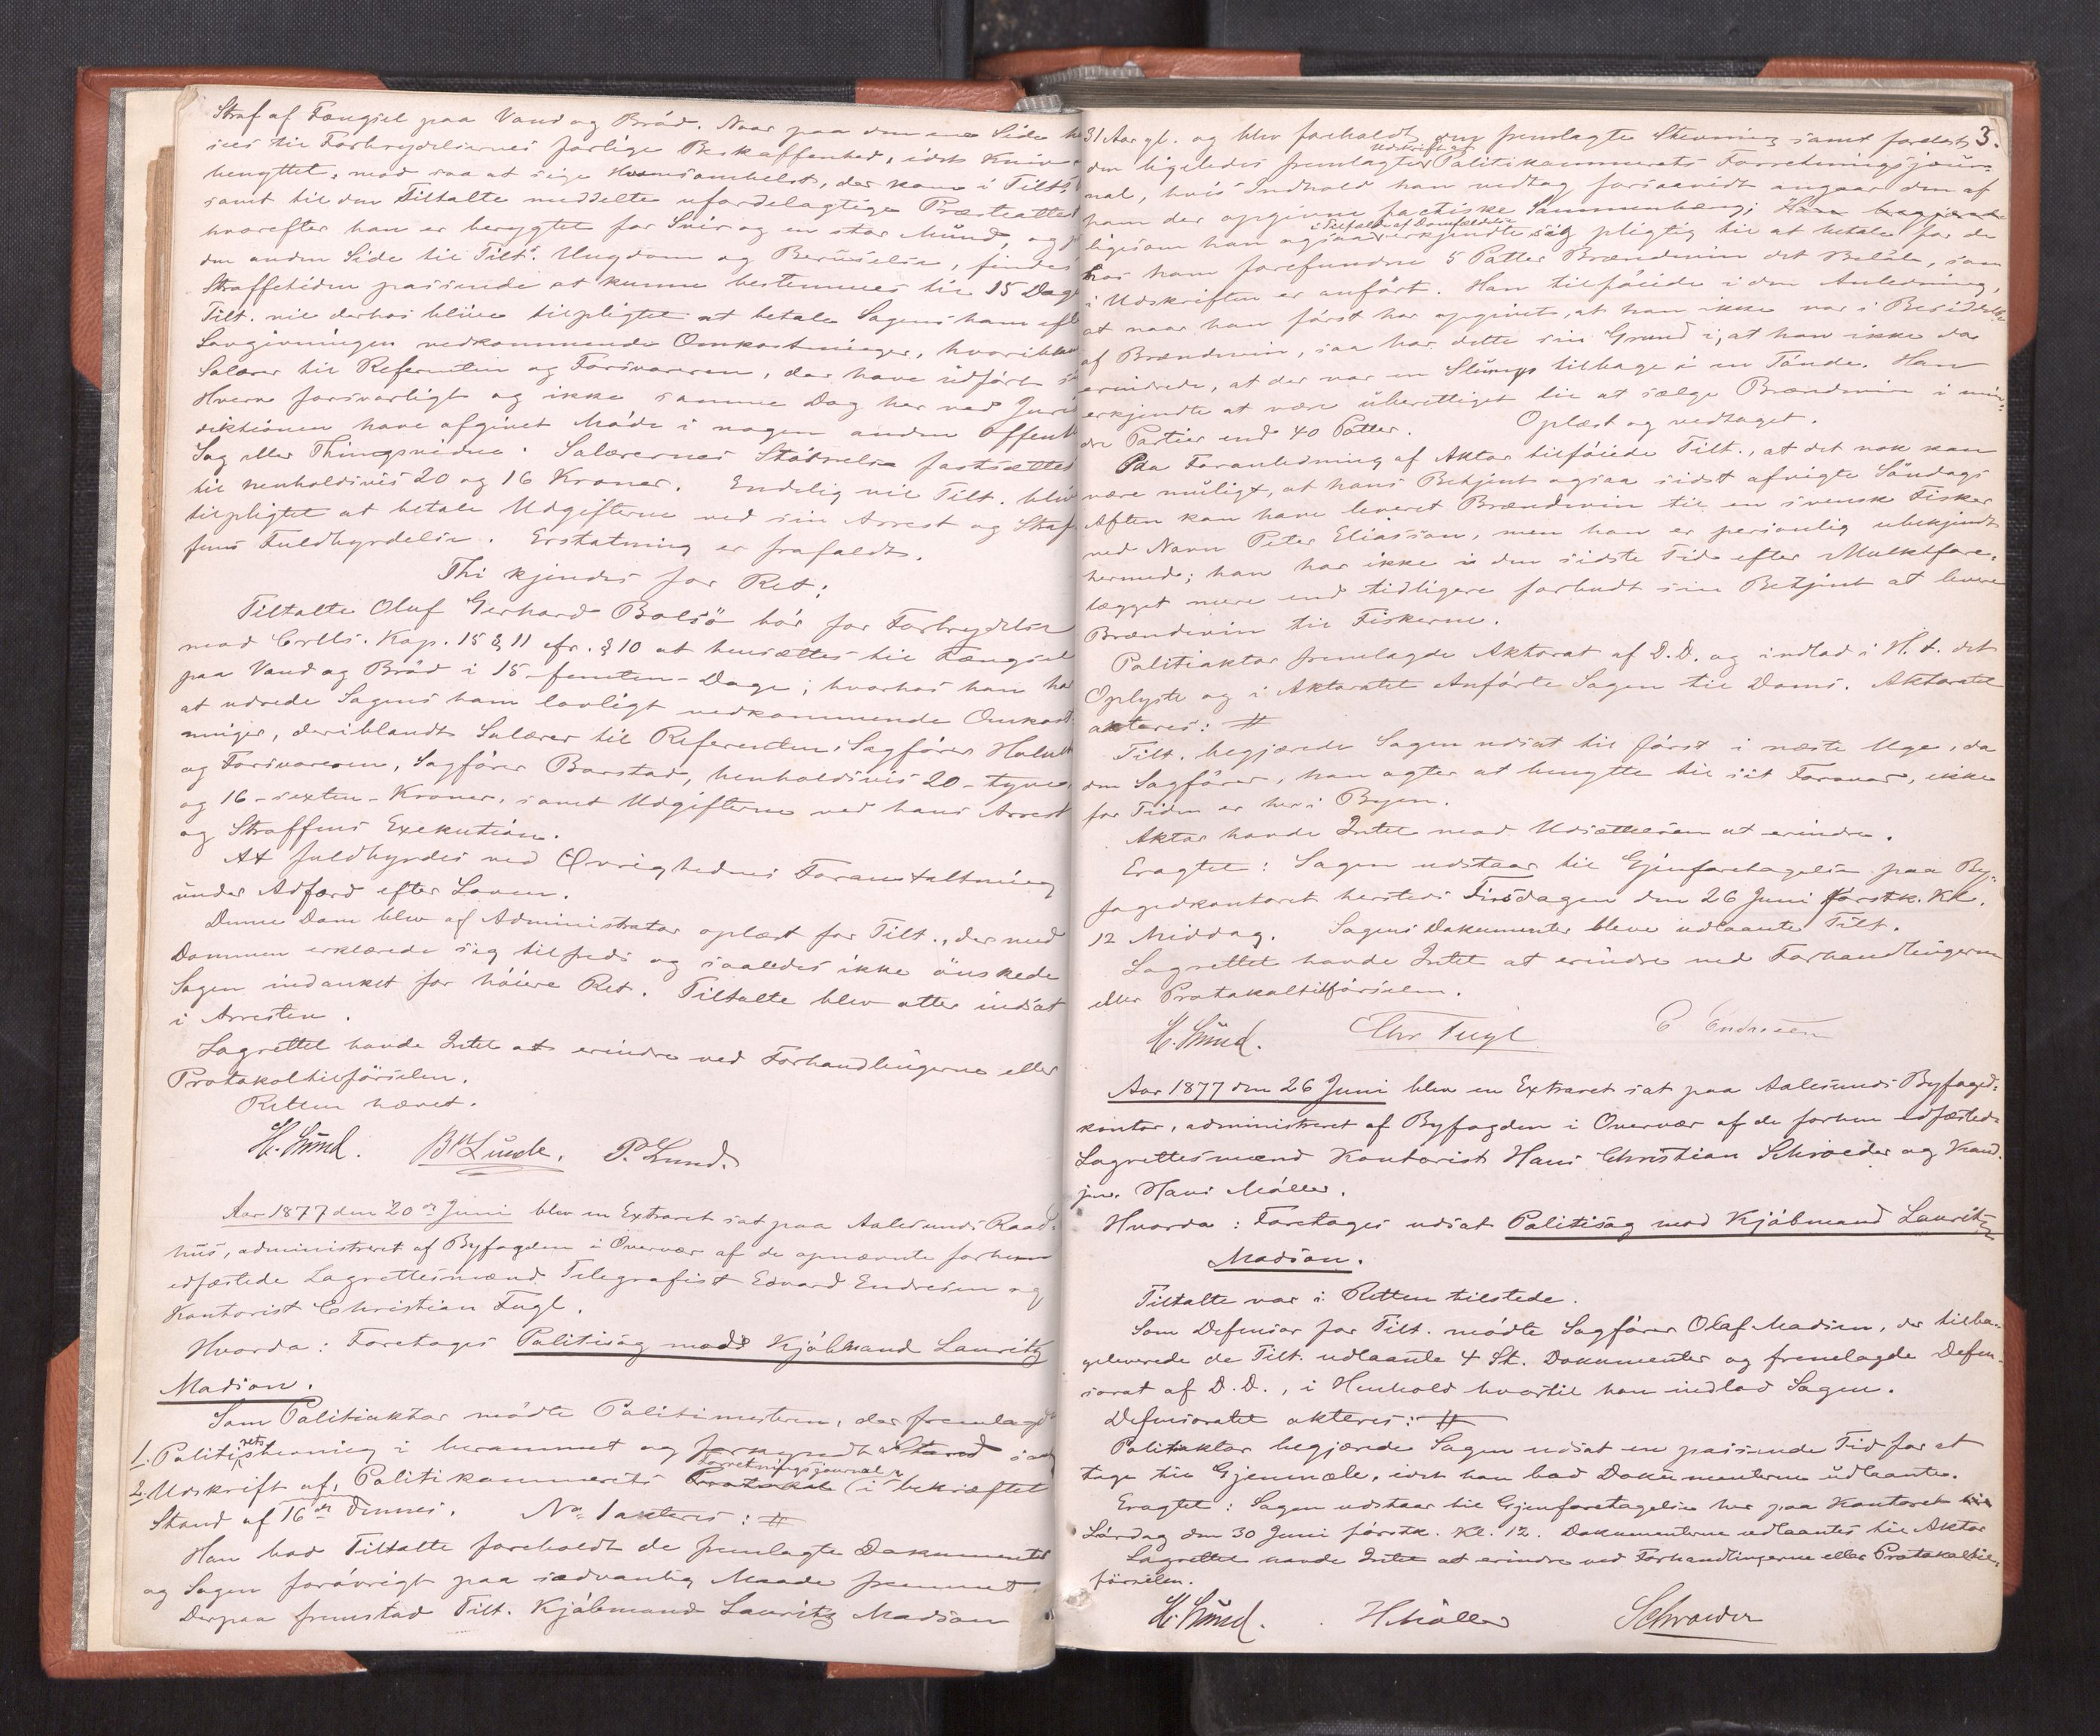 Straf af Fængsel paa Vand og Brød. Naar paa den ene Side
sees til Forbrydelsernes farlige Beskaffenhed, idet Kniv
benyttet, mod saa at sige Hvemsomhelst, der kom i Tilts
samt til den Tiltalte meddelte ufordelagtige Præsteattest
hvorefter han er berygtet for Svir og en stor Mund, og p
den anden Side til Tilts. Ungdom og Beruselse, findes
Straffetiden passende at kunne bestemmes til 15 Dage
Tilt. vil derhos blive tilpligtet at betale Sagens ham eft
Lovgivningen vedkommende Omkostninger, hvoriblan
Salærer til Referenten og Forsvareren, der have udført s
Hverv forsvarligt og ikke samme Dag her ved Juris
diktionen have afgivet Møde i nogen anden offent
Sag eller Thingsvidne. Salærernes Størrelse fastsættes
til henholdsvis 20 og 16 Kroner. Endelig vil Tilt. bliv
tilpligtet at betale Udgifterne ved sin Arrest og Straf
fens Fuldbyrdelse. Erstatning er frafaldt.
Thi kjendes for Ret:
Tiltalte Oluf Gerhard Bolsö bör for Forbrydelse
mod Crlls. Kap. 15 § 11 cfr. § 10 at hensættes til Fængsel
paa Vand og Bröd i 15 - femten - Dage; hvorhos han har
at udrede Sagens ham lovligt vedkommende Omkost-
ninger, deriblandt Salærer til Referenten, Sagfører
og Forsvareren, Sagfører Barstad, henholdsvis 20 - tyve
og 16 - sexten - Kroner, samt Udgifterne ved hans Arrest
og Straffens Exekution.
At fuldbyrdes ved Övrighedens Foranstaltning
under Adfærd efter Loven.
Denne Dom blev af Administrator oplæst for Tilt., der med
Dommen erklærede sig tilfreds og saaledes ikke önskede
Sagen indanket for höiere Ret. Tiltalte blev atter indsat
i Arresten.
Lagrettet havde Intet at erindre ved Forhandlingerne eller
Protokoltilförselen.
Retten hævet.
H. Lund. B. Lunde. P. Lund.
Aar 1877 den 20de Juni blev en Extraret sat paa Aalesunds Raad-
hus, administreret af Byfogden i Overvær af de opnævnte forhen
edfæstede Lagrettesmænd Telegrafist Edvard Endresen og
Kontorist Christian Fugl.
Hvorda: Foretoges Politisag mod Kjöbmand Lauritz
Madson.
Som Politiaktor mödte Politimesteren, der fremlagde
1. Politiretsstevning i berammet og forkyndt Stand samt
2. Udskrift af Politikammerets Forretningsjournal (i bekræftet
Stand af 16de dennes. No 1 akteres: #
Han bad Tiltalte foreholdt de fremlagte Dokumenter
og Sagen forøvrigt paa sædvanlig Maade fremmet.
Derpaa fremstod Tilt. Kjöbmand Lauritz Madson
3.
31 Aar gl. og blev foreholdt den fremlagte Stevning samt forelæst
den ligeledes fremlagte Udskrift af Politikammerets Forretningsjour-
nal, hvis Indhold han vedtog forsaavidt angaar den af
ham der opgivne factiske Sammenhæng; Han begjærede
ligesom han ogsaa i Tilfælde af Domfældelse erkjendte sig pligtig til at betale for de
hos ham forefundne 5 Potter Brændevin det Belöb, som
i Udskriften er anført. Han tilföiede i den Anledning,
at naar han först har opgivet, at han ikke var i Besiddelse
af Brændevin, saa har dette sin Grund i, at han ikke da
erindrede, at der var en Slump tilbage i en Tönde. Han
erkjendte at være uberettiget til at sælge Brændevin i min-
dre Partier end 40 Potter. Oplæst og vedtaget.
Paa Foranledning af Aktor tilföiede Tilt., at det nok kan
være muligt, at hans Betjent ogsaa sidst afvigte Söndags
Aften kan have leveret Brændevin til en svensk Fisker
ved Navn Peter Eliasson, men han er personlig ubekjendt
hermed; han har ikke i den sidste Tid efter Mulktfore-
lægget mere end tidligere forbudt sin Betjent at levere
Brændevin til Fiskerne.
Politiaktor fremlagde Aktorat af D.D. og indlod i H. t. det
Oplyste og i Aktoratet Anförte Sagen til Doms. Aktoratet
akteres: #
Tilt. begjærede Sagen udsat til först i næste Uge, da
den Sagförer, han agter at benytte til sit Forsvar, ikke
for Tiden er her i Byen.
Aktor havde Intet mod Udsættelsen at erindre.
Eragtet: Sagen udstaar til Gjenforetagelse paa By-
fogedkontoret hersteds Tirsdagen den 26 Juni förstk. Kl.
12 Middag. Sagens Dokumenter bleve udlaante Tilt.
Lagrettet havde Intet at erindre ved Forhandlingerne
eller Protokoltilförselen.
H. Lund. Chr Fugl E Endresen
Aar 1877 den 26 Juni blev en Extraret sat paa Aalesunds Byfoged-
kontor, administreret af Byfogden i Overvær af de forhen edfæstede
Lagrettesmænd Kontorist Hans Christian Schroeder og Kand.
jur. Hans Möller.
Hvorda: Foretoges udsat Politisag mod Kjöbmand Lauritz
Madson.
Tiltalte var i Retten tilstede.
Som Defensor for Tilt. mödte Sagförer Olaf Madsen, der tilba-
geleverede de Tilt. udlaante 4 St. Dokumenter og fremlagde Defen-
sorat af D.D., i Henhold hvortil han indlod Sagen.
Defensoratet akteres: #
Politiaktor begjærede Sagen udsat en passende Tid for at
tage til Gjenmæle, idet han bad Dokumenterne udlaante.
Eragtet: Sagen udstaar til Gjenforetagelse her paa Kontoret
Lördag den 30 Juni förstk. Kl. 12. Dokumenterne udlaantes til Aktor
Lagrettet havde Intet at erindre ved Forhandlingerne eller Protokoltil-
förselen.
H. Lund. H Möller Schroeder